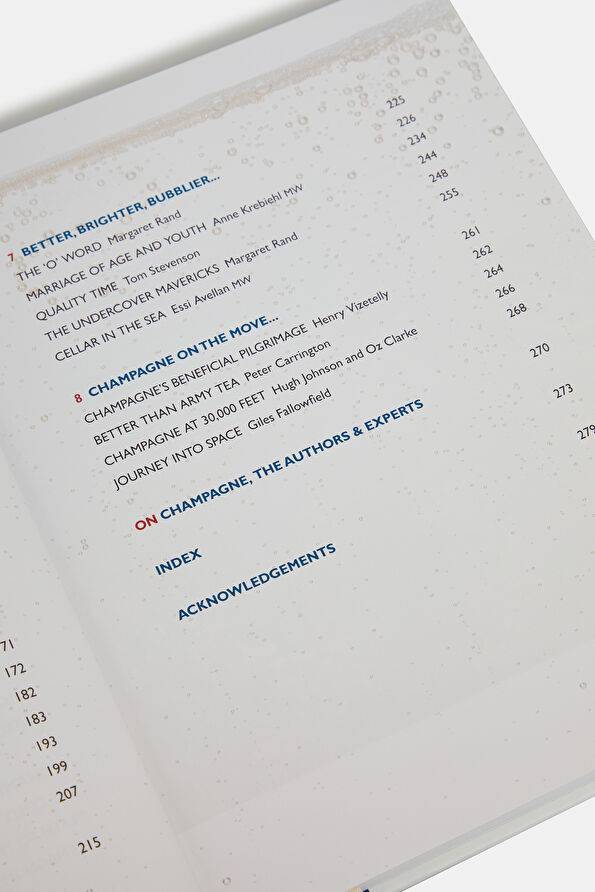 7 BETTER, BRIGHTER, BUBBLIER... 225
THE ‘O’ WORD Margaret Rand 226
MARRIAGE OF AGE AND YOUTH Anne Krebiehl MW 234
QUALITY TIME Tom Stevenson 244
THE UNDERCOVER MAVERICKS Margaret Rand 248
CELLAR IN THE SEA Essi Avellan MW 255
8 CHAMPAGNE ON THE MOVE... 261
CHAMPAGNE’S BENEFICIAL PILGRIMAGE Henry Vizetelly 262
BETTER THAN ARMY TEA Peter Carrington 264
CHAMPAGNE AT 30,000 FEET Hugh Johnson and Oz Clarke 266
JOURNEY INTO SPACE Giles Fallowfield 268
ON CHAMPAGNE, THE AUTHORS & EXPERTS 270
INDEX 273
ACKNOWLEDGEMENTS 279
71
172
182
183
193
199
207
215